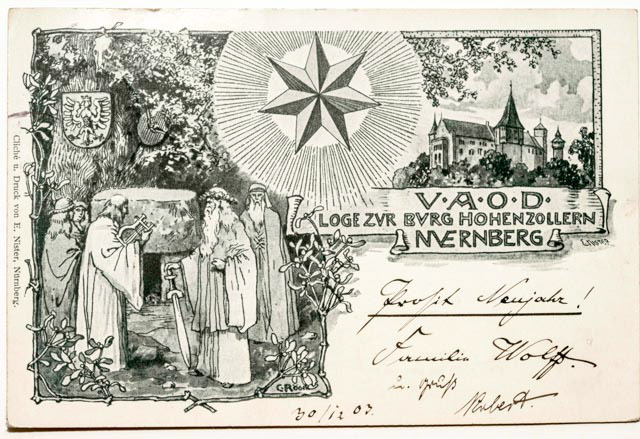 V·A·O·D·
LOGE ZVR BVRG HOHENZOLLERN
NVERNBERG
Prosit Neujahr!
Familie Wolff.
u. Gruß
Robert.
30/12 03.
Cliché u. Druck von E. Nister, Nürnberg.